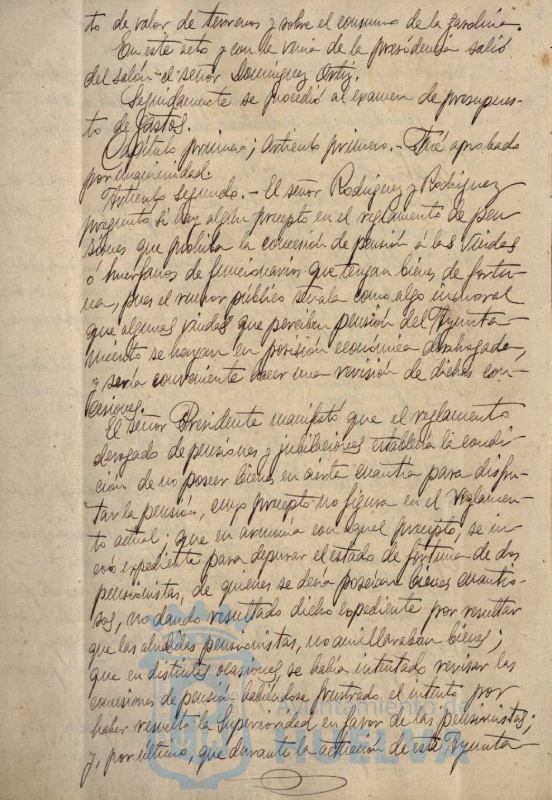 to de valor de terrenos y sobre el consumo de la gasolina.
En este acto y con la venia de la presidencia salió
del salón el señor Domínguez Ortiz.
Seguidamente se procedió al examen de presupues-
to de Gastos.
Capítulo primero; Artículo primero.- Fué aprobado
por unanimidad.
Artículo segundo.- El señor Rodríguez y Rodríguez
preguntó si hay algún precepto en el reglamento de pen
siones que prohiba la concesión de pensión á las viudas
ó huérfanos de funcionarios que tengan bienes de fortu-
na, pues el rumor público señala como algo inmoral
que algunas viudas que perciben pensión del Ayunta-
miento se hayan en posición económica desahogada,
y sería conveniente hacer una revisión de dichas con-
cesiones.
El señor Presidente manifestó que el reglamento
derogado de pensiones y jubilaciones establecía la condi-
ción de no poseer bienes en cierta cuantía para disfru-
tar la pensión, cuyo precepto no figura en el reglamen-
to actual; que en armonía con aquel precepto, se in
coó expediente para depurar el estado de fortuna de dos
pensionistas, de quienes se decía poseían bienes cuantio-
sos, no dando resultado dicho expediente por resultar
que las aludidas pensionistas, no amillaraban bienes;
que en distintas ocasiones se había intentado revisar las
concesiones de pensión habiéndose frustrado el intento por
haber resuelto la Superioridad en favor de las pensionistas;
y, por último, que durante la actuación de este Ayunta
Ayuntamiento de
HUELVA